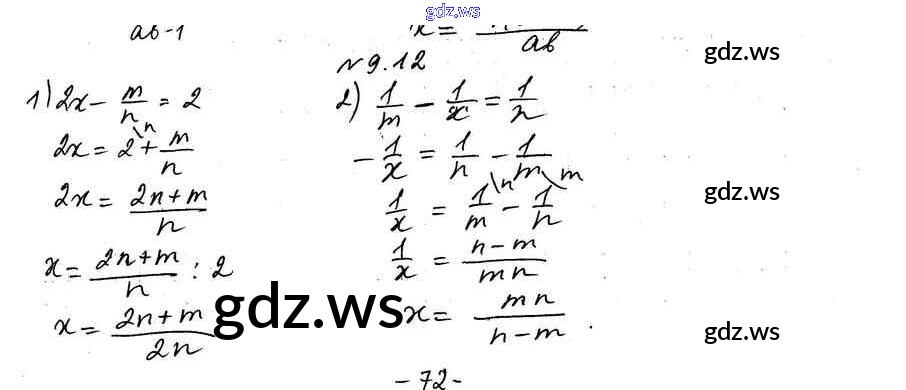 gdz.ws
ab-1
x = ――― / ab
gdz.ws
№9.12
1) 2x - m/n = 2
2x = 2\n + m/n
2x = (2n+m)/n
x = (2n+m)/n : 2
x = (2n+m)/2n
2) 1/m - 1/x = 1/n
- 1/x = 1/n - 1/m
1/x = 1/m\n - 1/n\m
1/x = (n-m)/mn
x = mn/(n-m).
gdz.ws
gdz.ws
gdz.ws
- 72 -